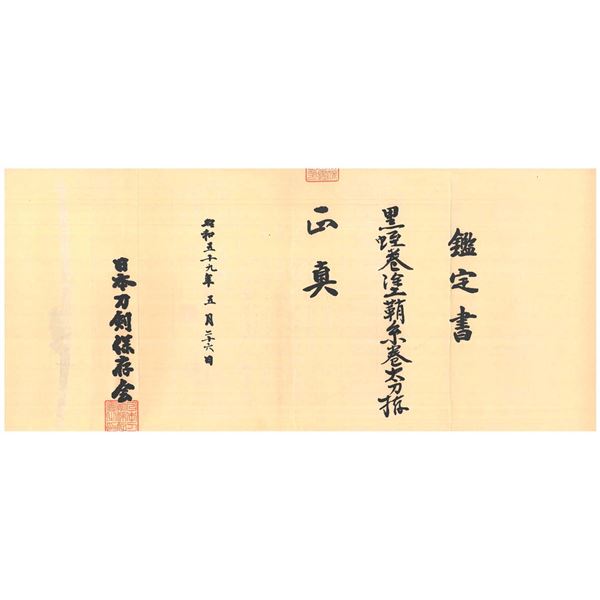 鑑定書
黒蛭巻塗鞘糸巻太刀拵
正真
昭和五十九年五月二十六日
日本刀剣保存会